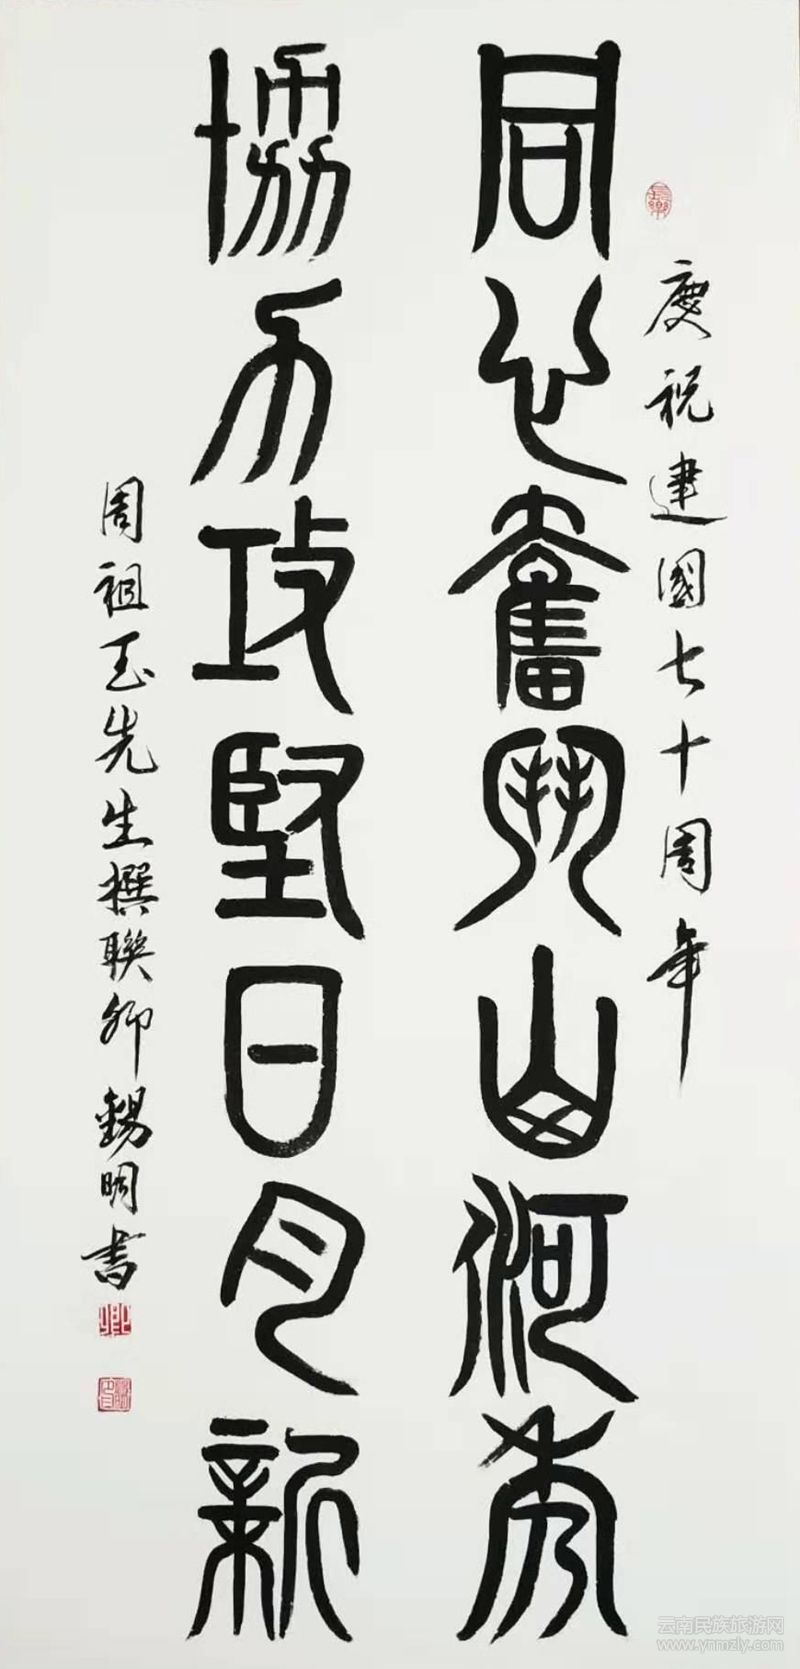 慶祝建國七十周年
同心奮鬥山河秀
協力攻堅日月新
周祖玉先生撰聯卿錫明書
云南民族旅游网
www.ynmzly.com